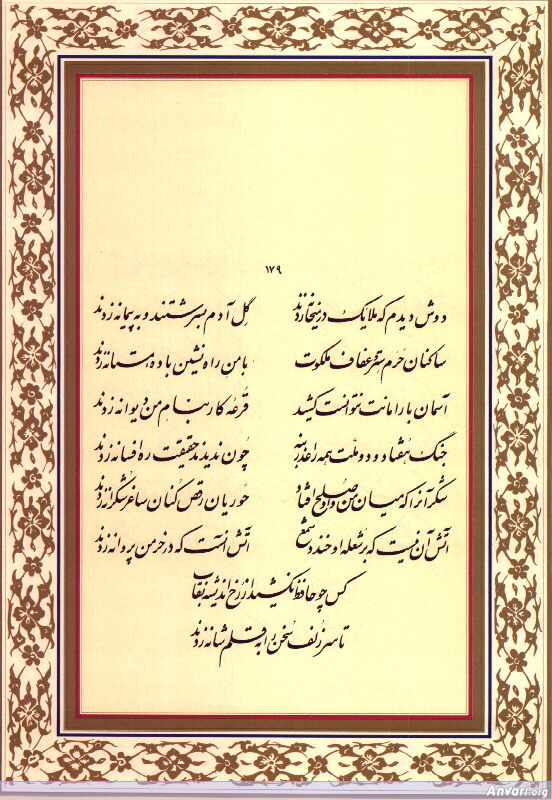 ۱۷۹
دوش دیدم که ملایک در میخانه زدند گِل آدم بسرشتند و به پیمانه زدند
ساکنان حَرَم ستر و عفاف ملکوت با منِ راه نشین باده مستانه زدند
آسمان بار امانت نتوانست کشید قُرعه کار بنام من دیوانه زدند
جنگ هفتاد و دو ملّت همه را عذر بنه چون ندیدند حقیقت ره افسانه زدند
شکر آنرا که میان من و او صلح افتاد حوریان رقص کنان ساغر شکرانه زدند
آتش آن نیست که بر شعله او خندد شمع آتش آنست که در خرمن پروانه زدند
کس چو حافظ نکشید از رخ اندیشه نقاب
تا سر زلف سُخن را به قلم شانه زدند
Anvari.org